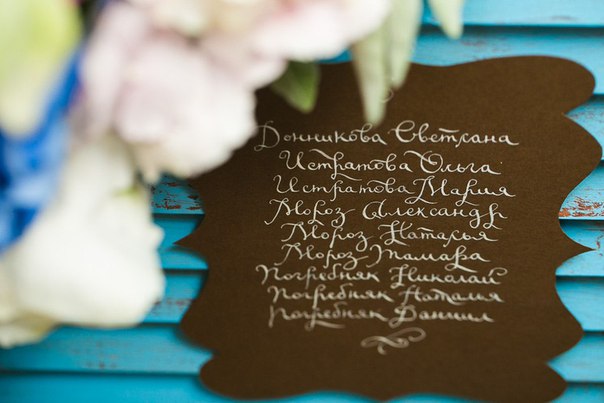 Донникова Светлана
Истратова Ольга
Истратова Мария
Мороз Александр
Мороз Наталья
Мороз Тамара
Погребняк Николай
Погребняк Наталия
Погребняк Даниил